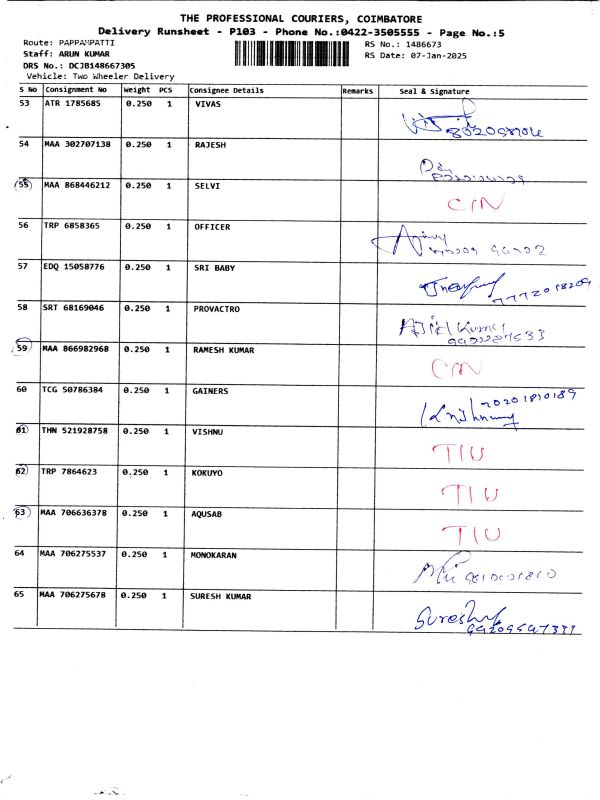 THE PROFESSIONAL COURIERS, COIMBATORE
Delivery Runsheet - P103 - Phone No.:0422-3505555 - Page No.:5
Route: PAPPAMPATTI RS No.: 1486673
Staff: ARUN KUMAR RS Date: 07-Jan-2025
DRS No.: DCJB148667305
Vehicle: Two Wheeler Delivery
S No Consignment No Weight PCS Consignee Details Remarks Seal & Signature
53 ATR 1785685 0.250 1 VIVAS
54 MAA 302707138 0.250 1 RAJESH
55 MAA 868446212 0.250 1 SELVI C/N
56 TRP 6858365 0.250 1 OFFICER
57 EDQ 15058776 0.250 1 SRI BABY 7772018209
58 SRT 68169046 0.250 1 PROVACTRO
59 MAA 866982968 0.250 1 RAMESH KUMAR C/N
60 TCG 50786384 0.250 1 GAINERS
61 THN 521928758 0.250 1 VISHNU T/U
62 TRP 7864623 0.250 1 KOKUYO T/U
63 MAA 706636378 0.250 1 AQUSAB T/U
64 MAA 706275537 0.250 1 MONOKARAN
65 MAA 706275678 0.250 1 SURESH KUMAR Suresh